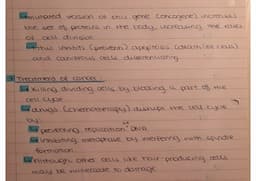 mutated version of this gene (oncogene) increases
the no. of proteins in the body, increasing the rates
of cell division
this inhibits (prevents) apoptosis (death of cells)
and cancerous cells differentiating
Treatment of cancer
Killing dividing cells by blocking a part of the
cell cycle
drugs (chemotherapy) disrupts the cell cycle
by
preventing replication DNA
inhibiting metaphase by interfering with spindle
formation
Although other cells like hair-producing cells
may be vulnerable to damage